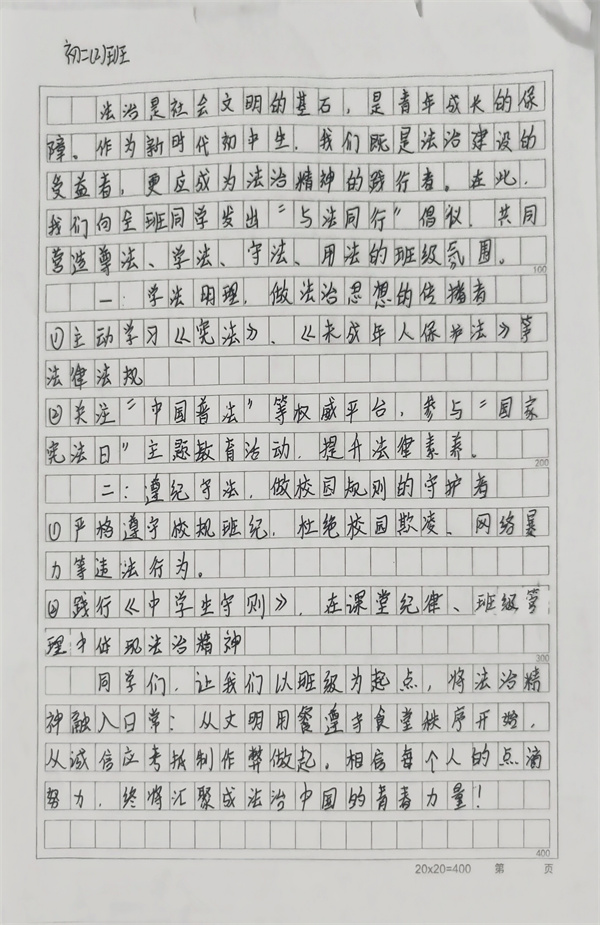 初二(2)班
法治是社会文明的基石，是青年成长的保
障。作为新时代初中生，我们既是法治建设的
受益者，更应成为法治精神的践行者。在此，
我们向全班同学发出“与法同行”倡议，共同
营造尊法、学法、守法、用法的班级氛围。
100
一：学法明理，做法治思想的传播者
①主动学习《宪法》、《未成年人保护法》等
法律法规
②关注“中国普法”等权威平台，参与“国家
宪法日”主题教育活动，提升法律素养。
200
二：遵纪守法，做校园规则的守护者
①严格遵守校规班纪，杜绝校园欺凌、网络暴
力等违法行为。
②践行《中学生守则》，在课堂纪律、班级管
理中体现法治精神
300
同学们，让我们以班级为起点，将法治精
神融入日常：从文明用餐遵守食堂秩序开始，
从诚信应考抵制作弊做起。相信每个人的点滴
努力，终将汇聚成法治中国的青春力量！
400
20x20=400 第 页